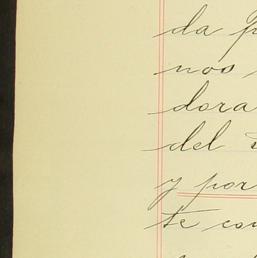 da p
nos
dora
del
y por
te con